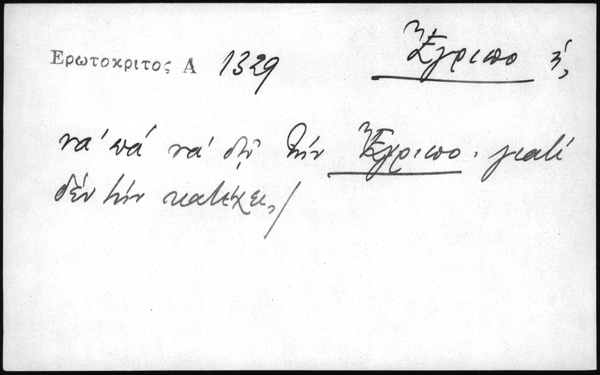 Ερωτοκριτος Α 1329 Ἔγριπο ἡ,
νά πά νά δῇ τήν Ἔγριπο, γιατί
δέν τήν κατέχει,/